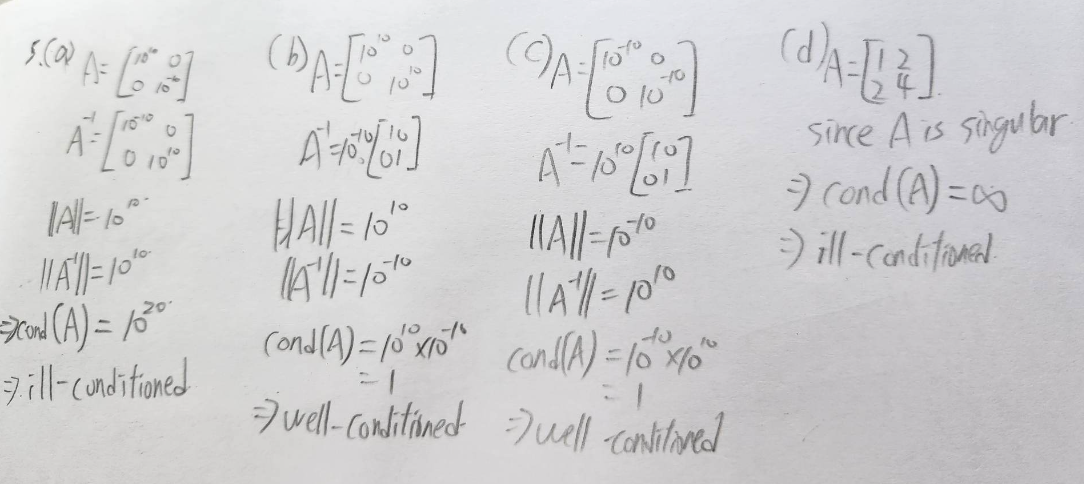 5.(a) A = [10^10 0; 0 10^-10]
A^-1 = [10^-10 0; 0 10^10]
||A|| = 10^10
||A^-1|| = 10^10
⇒ cond(A) = 10^20
⇒ ill-conditioned
(b) A = [10^10 0; 0 10^10]
A^-1 = 10^-10 [1 0; 0 1]
||A|| = 10^10
||A^-1|| = 10^-10
cond(A) = 10^10 × 10^-10
= 1
⇒ well-conditioned
(c) A = [10^-10 0; 0 10^-10]
A^-1 = 10^10 [1 0; 0 1]
||A|| = 10^-10
||A^-1|| = 10^10
cond(A) = 10^-10 × 10^10
= 1
⇒ well-conditioned
(d) A = [1 2; 2 4].
since A is singular
⇒ cond(A) = ∞
⇒ ill-conditioned.